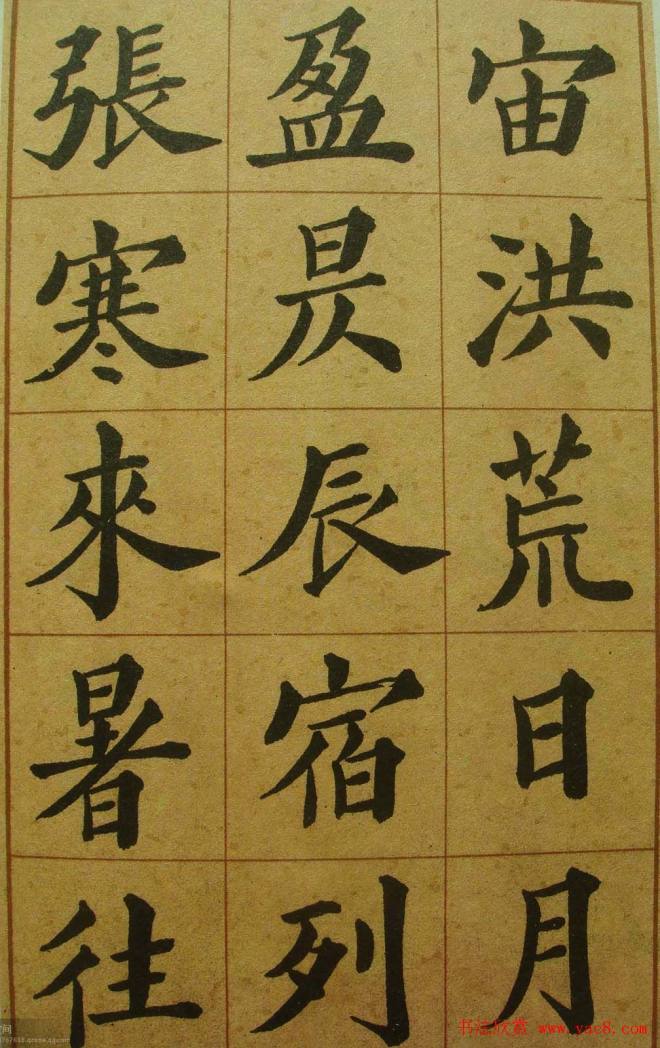 宙洪荒日月
盈昃辰宿列
張寒來暑往
书法欣赏 www.yac8.com